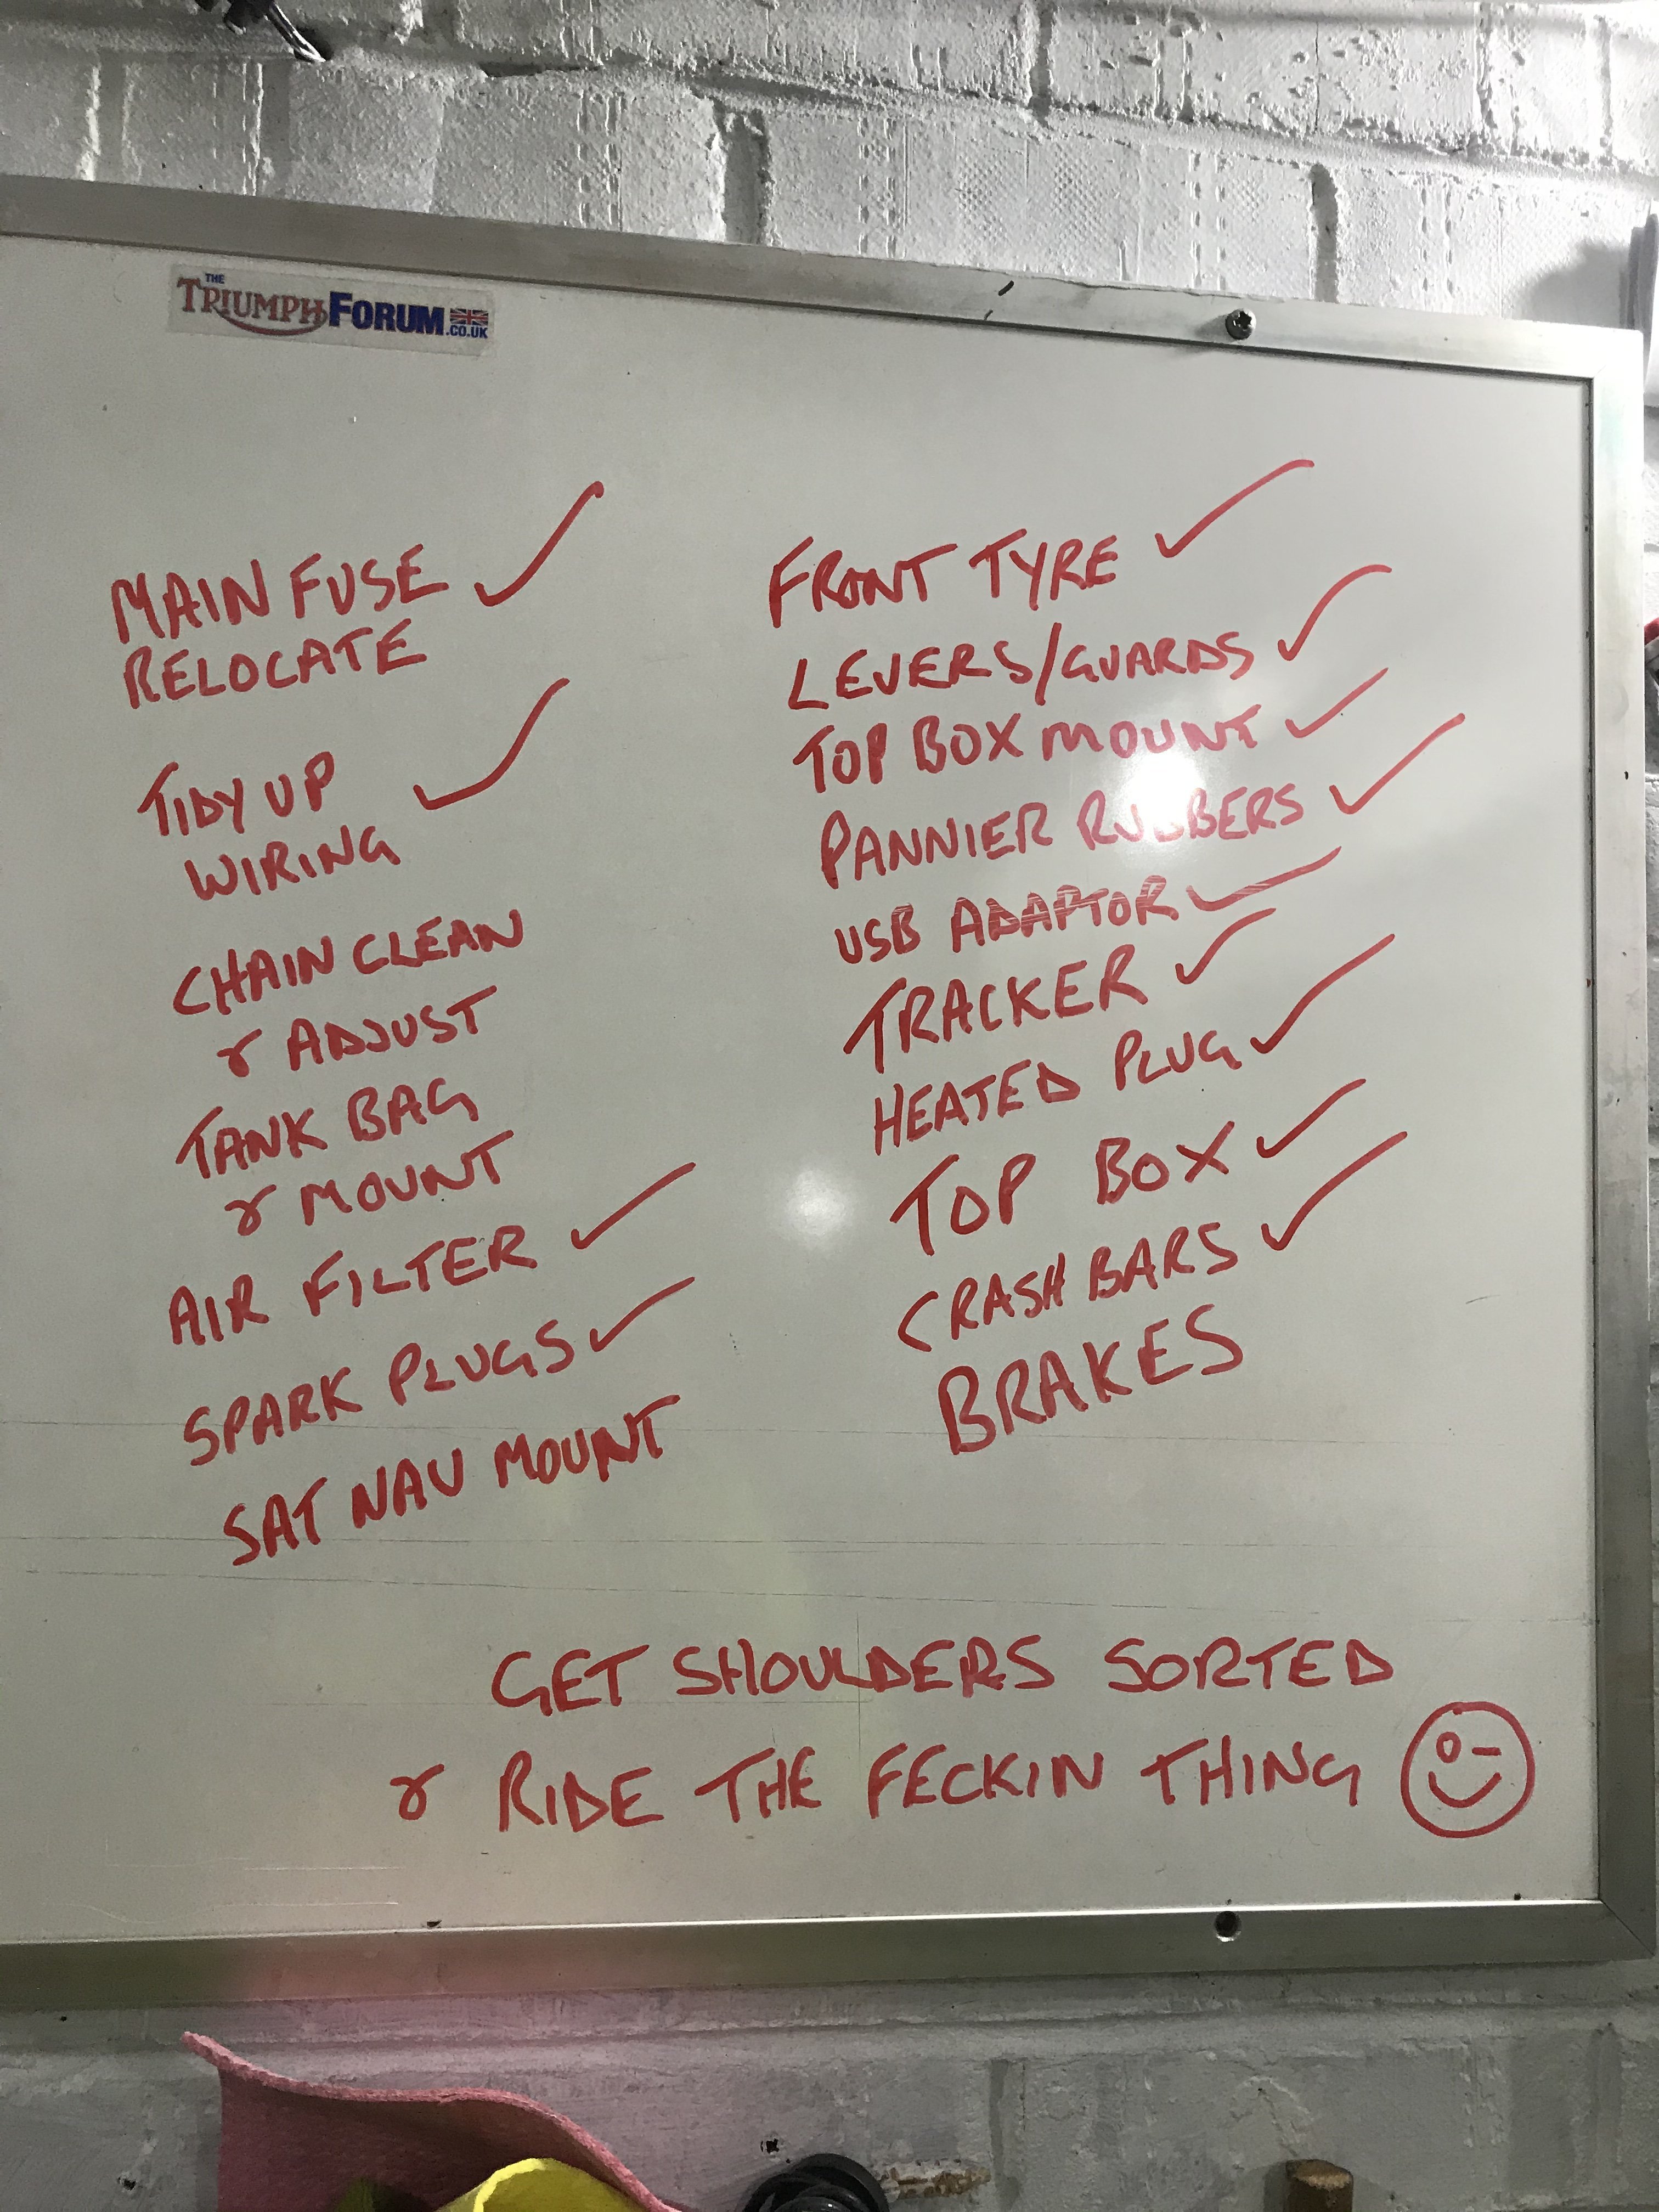 THE
TRIUMPH FORUM.CO.UK
MAIN FUSE ✓
RELOCATE
TIDY UP ✓
WIRING
CHAIN CLEAN
& ADJUST
TANK BAG
& MOUNT
AIR FILTER ✓
SPARK PLUGS ✓
SAT NAV MOUNT
FRONT TYRE ✓
LEVERS/GUARDS ✓
TOP BOX MOUNT ✓
PANNIER RUBBERS ✓
USB ADAPTOR ✓
TRACKER ✓
HEATED PLUG ✓
TOP BOX ✓
CRASH BARS ✓
BRAKES
GET SHOULDERS SORTED
& RIDE THE FECKIN THING